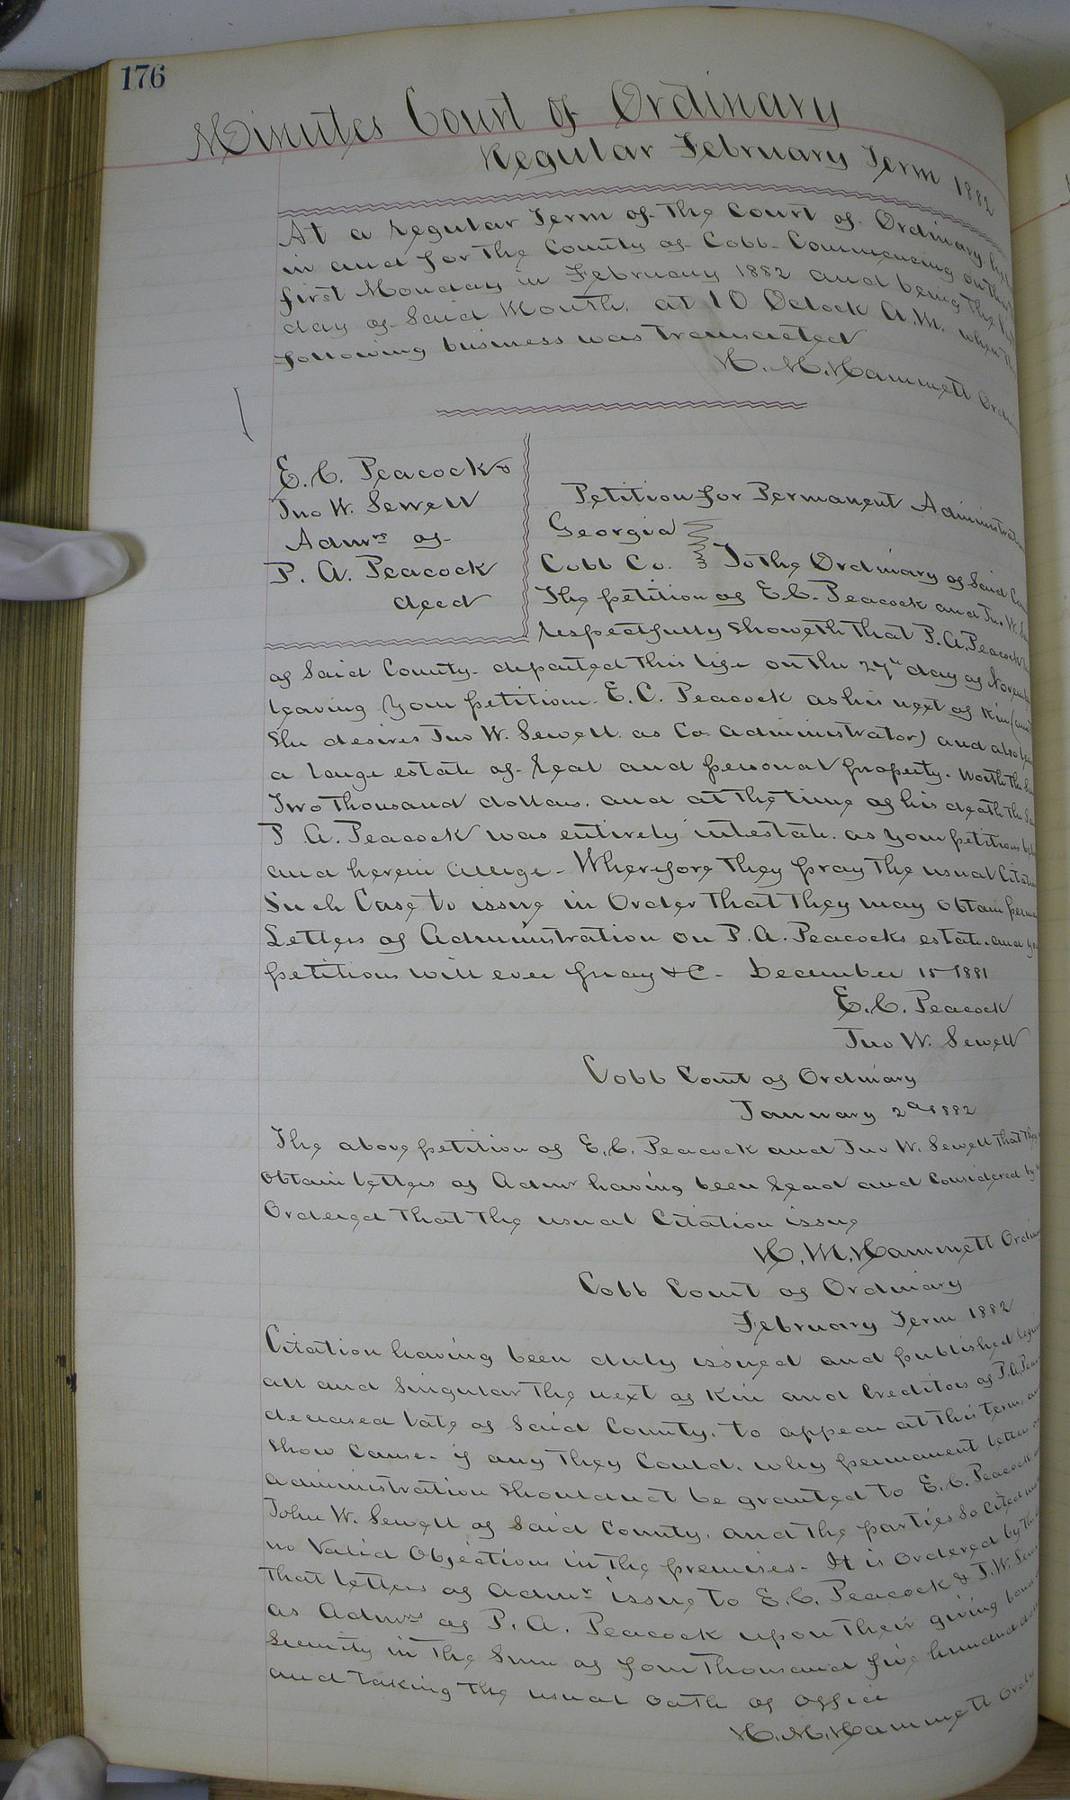 176
Minutes Court of Ordinary
Regular February Term 1882
At a regular Term of the Court of Ordinary
in and for the County of Cobb Commencing on the
first Monday in February 1882 and being the
day of Said Month, at 10 Oclock A.M. when
following business was transacted
H. M. Hammett
E. C. Peacock &
Jno W. Sewell
Admrs of
P. A. Peacock
decd
Petition for Permanent
Georgia
Cobb Co. To the Ordinary of Said
The petition of E.C. Peacock and Jno. W.
respectfully showeth that P.A. Peacock
of Said County departed this life on the 27th day of
leaving your petition. E. C. Peacock as his next of Kin (and
she desires Jno W. Sewell as Co administrator) and also
a large estate of Real and personal property. Worth the
Two thousand dollars. and at the time of his death the
P. A. Peacock was entirely intestate. as your petitions
and herein allege - Wherefore they pray the usual
Such Case to issue in Order that they may obtain
Letters of Administration on P.A. Peacocks estate. and
petitions will ever pray &C - December 15 1881
E. C. Peacock
Jno W. Sewell
Cobb Court of Ordinary
January 2d 1882
The above petition of E. C. Peacock and Jno W. Sewell that they
obtain letters of Admr having been read and considered by
Ordered that the usual Citation issue
H. M. Hammett
Cobb Court of Ordinary
February Term 1882
Citation having been duly issued and published
all and Singular the next of Kin and Creditors of P. A.
deceased late of Said County, to appear at this term,
show cause, if any they Could, why permanent letters
administration should not be granted to E. C. Peacock
John W. Sewell of Said County, and the parties so Cited
no Valid Objections in the premises - It is Ordered by the
that letters of Admr issue to E. C. Peacock & J. W.
as Admrs of P. A. Peacock upon their giving bond
Security in the Sum of four thousand five hundred
and taking the usual oath of office
H. M. Hammett